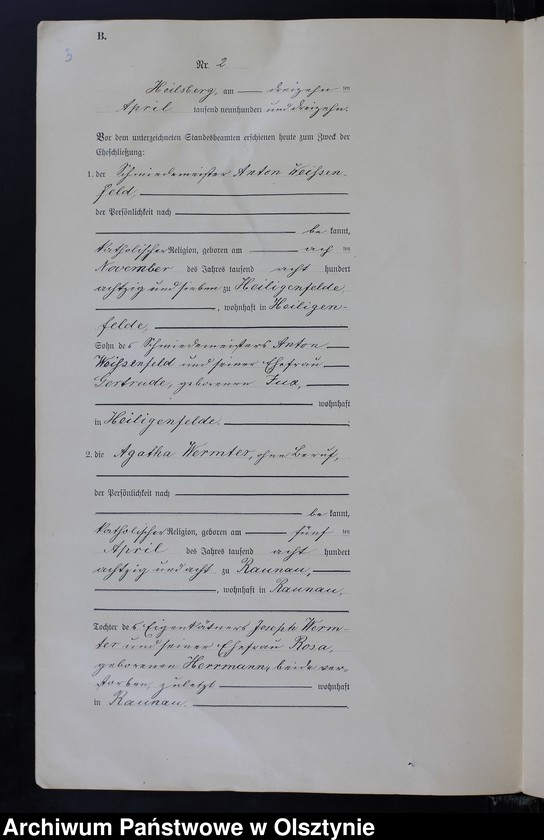 B.
3
Nr. 2
Heilsberg, am dreizehn ten
April tausend neunhundert und dreizehn.
Vor dem unterzeichneten Standesbeamten erschienen heute zum Zweck der
Eheschließung:
1. der Schmiedemeister Anton Weißen-
feld,
der Persönlichkeit nach
be kannt,
katholischer Religion, geboren am ach ten
November des Jahres tausend acht hundert
achtzig und sieben zu Heiligenfelde,
, wohnhaft in Heiligen-
felde,
Sohn des Schmiedemeisters Anton
Weißenfeld und seiner Ehefrau
Gertrude, geborenen Fux,
wohnhaft
in Heiligenfelde.
2. die Agatha Wermter, ohne Beruf,
der Persönlichkeit nach
be kannt,
katholischer Religion, geboren am fünf ten
April des Jahres tausend acht hundert
achtzig und acht zu Raunau,
, wohnhaft in Raunau,
Tochter des Eigenkätners Joseph Werm-
ter und seiner Ehefrau Rosa,
geborenen Herrmann, beide ver-
storben, zuletzt wohnhaft
in Raunau.
Archiwum Państwowe w Olsztynie